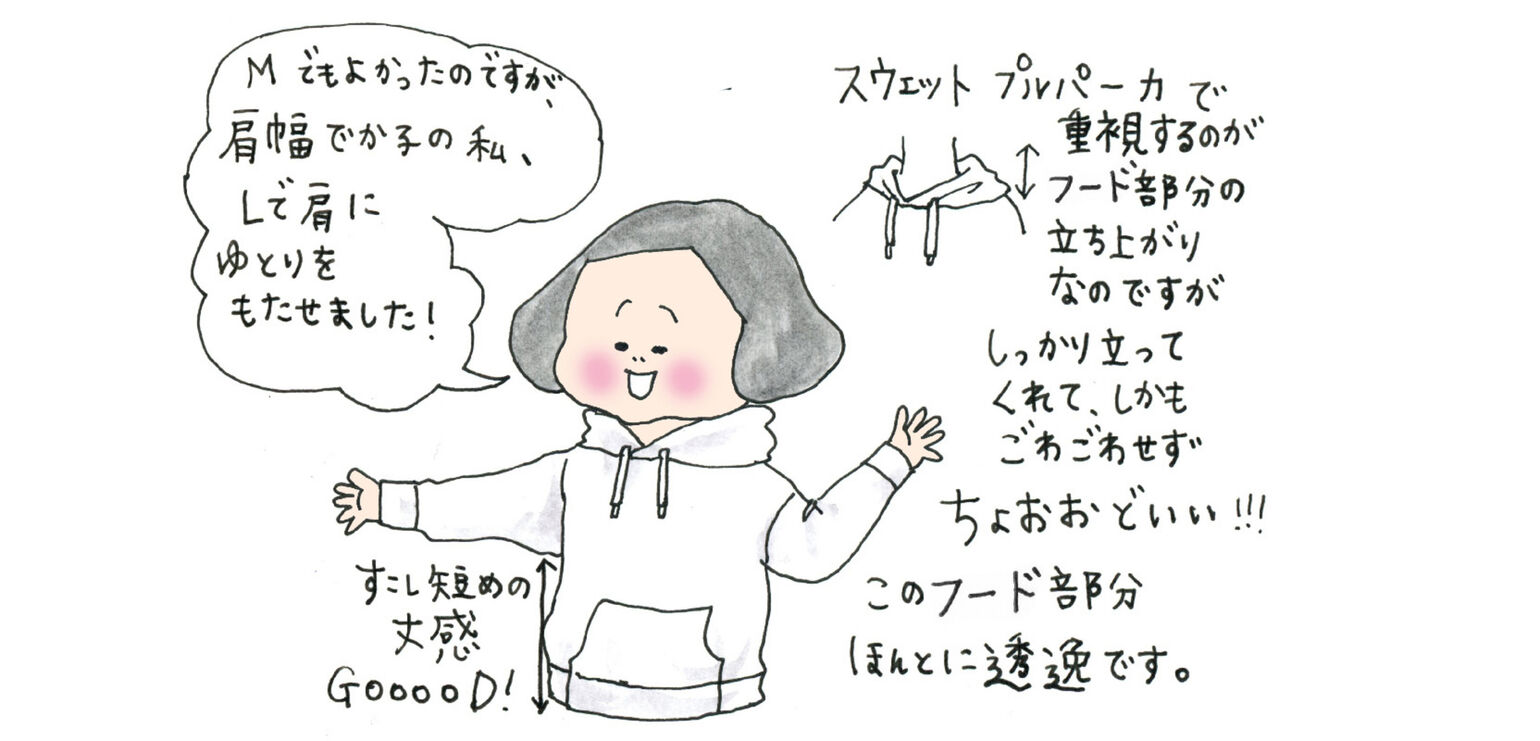 M でもよかったのですが、
肩幅でか子の私、
Lで肩に
ゆとりを
もたせました!
スウェット プルパーカで
重視するのが
フード部分の
立ち上がり
なのですが
しっかり立って
くれて、しかも
ごわごわせず
ちょおおどいい!!!
このフード部分
ほんとに透逸です。
すこし短めの
丈感
GooooD!